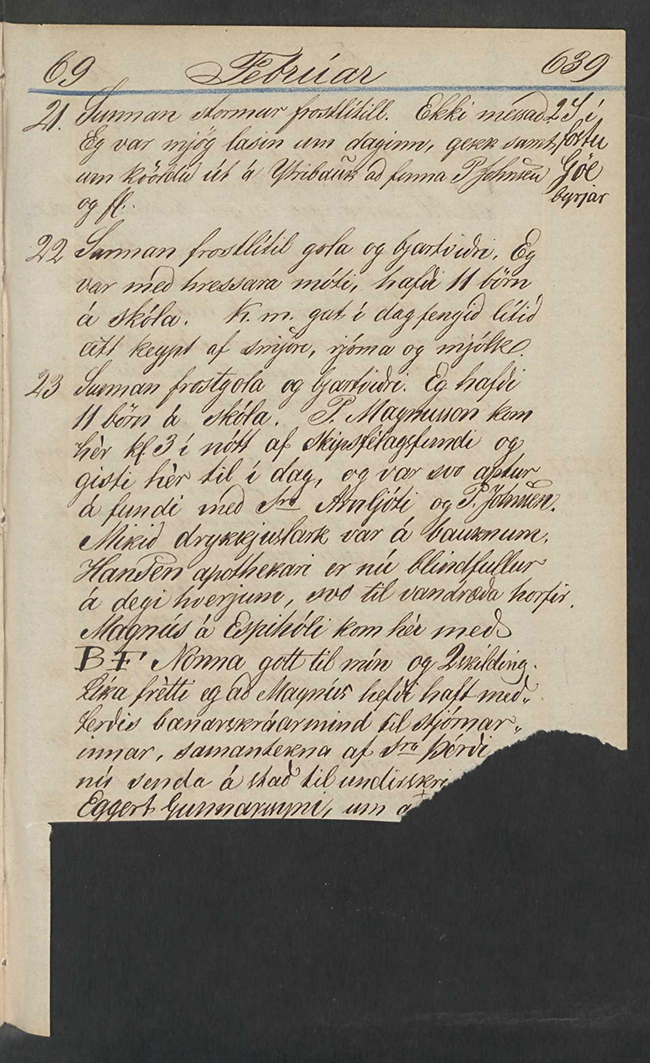 69 Febrúar 639
21. Sunnan stormur frostlítill. Ekki mesad 2 S í
Eg var mjög lasin um daginn, gekk samt föstu
um kvöldid út á Ytribauk ad finna P. Johnsen Góe
og fl. byrjar
22 Sunnan frostlítil gola og bjartvidri. Eg
var med hressara móti, hafdi 11 börn
á skóla. K. m. gat í dag fengid lítid
eitt keypt af smjöri, rjóma og mjólk.
23 Sunnan frostgola og bjartvidri. Eg hafdi
11 börn á skóla. P. Magnusson kom
hér kl 3 í nótt af skipsfélagsfundi og
gisti hér til í dag, og var svo aptur
á fundi med Sra Arnljóti og P. Johnsen.
Mikid drykkjuslark var á bauknum.
Hansen apothekari er nú blindfullur
á degi hverjum, svo til vandræda horfir.
Magnús á Espihóli kom hér med
B F Nonna gott til mín og 2 skilding.
Lika frétti eg ad Magnús hefdi haft med-
ferdis bænarskráarmind til stjórnar-
innar, samantekna af Sra Þórdi
nú senda á stad til undirskri
Eggert Gunnarssyni, um a